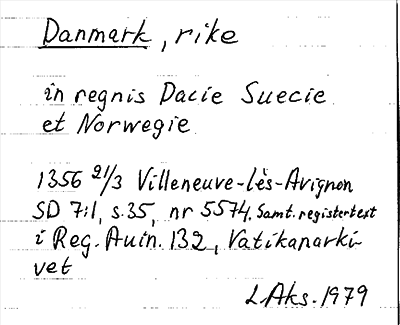 Danmark, rike
in regnis Dacie Suecie
et Norwegie
1356 21/3 Villeneuve-lès-Avignon
SD 7:1, s. 35, nr 5574. Samt. registertext
i Reg. Auin. 132, Vatikanarki-
vet
L Aks. 1979